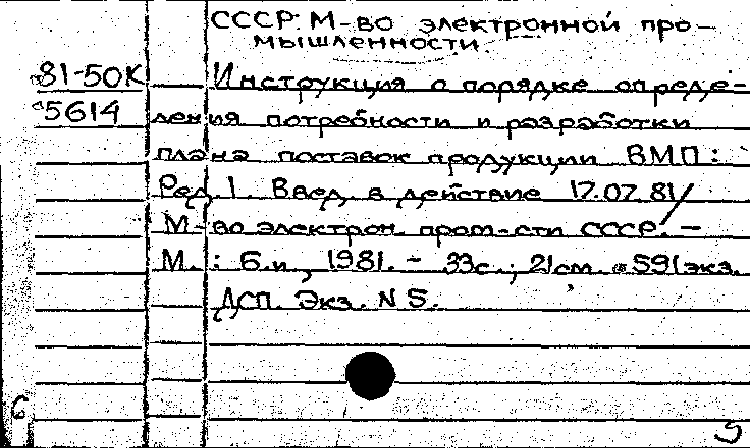 СССР. М-во электронной про-
мышленности.
81-50К Инструкция о порядке опреде-
5614 ления потребности и разработки
плана поставок продукции ВМП:
Ред. 1. Введ. в действие 17.07.81/
М-во электрон. пром-сти СССР. —
М.: Б.и., 1981. - 33с.; 21см. 591экз.
ДСП. Экз. N 5.